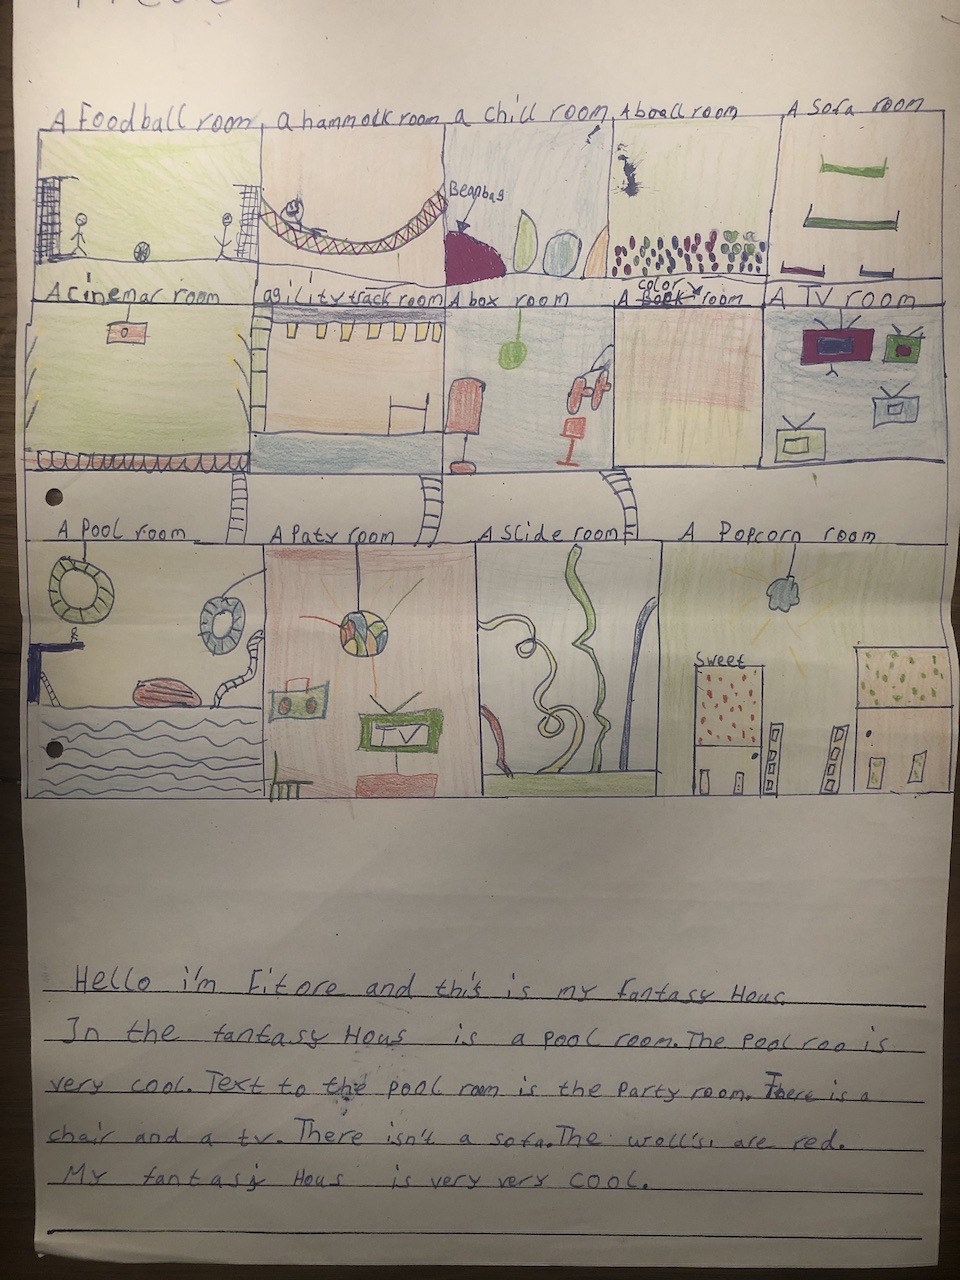 A Foodball room a hammock room a chill room A boall room A Sofa room
Beanbag
A cinemar room agility track room A box room A color room A TV room
A Pool room A Paty room A Slide room A Popcorn room
Sweet
TV
Hello i'm Fitore and this is my fantasy Hous
In the fantasy Hous is a pool room. The pool roo is
very cool. Text to the pool room is the Party room. There is a
chair and a tv. There isn't a sofa. The wall's are red.
My fantasy Hous is very very cool.